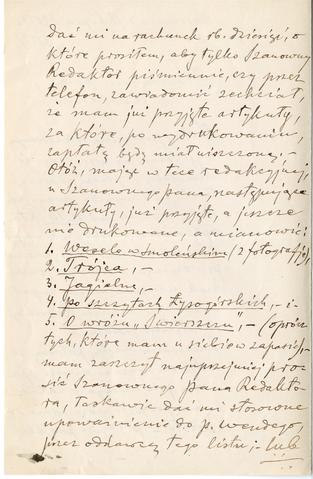 dać mi na rachunek rb. dziesięć, o
które prosiłem, aby tylko Szanowny
Redaktor piśmiennie, czy przez
telefon, zawiadomić zechciał,
że mam już przyjęte artykuły,
za które, po wydrukowaniu,
zapłatę będę miał uiszczoną. –
Otóż, mając w tece redakcyjnej
u Szanownego Pana, następujące
artykuły, już przyjęte, a jeszcze
nie drukowane, a mianowicie:
1. Wesele w Smoleńskim (2 fotografje),
2. Trójca, –
3. Jagialne, –
4. po szczytach Łysogórskich, – i –
5. O wróżu „Swierszczu", – (oprócz
tych, które mam u siebie w zapasie), –
mam zaszczyt najuprzejmiej pro-
sić Szanownego Pana Redakto-
ra, łaskawie dać mi stosowne
upoważnienie do p. Wendego,
przez oddawcę tego listu; – lub